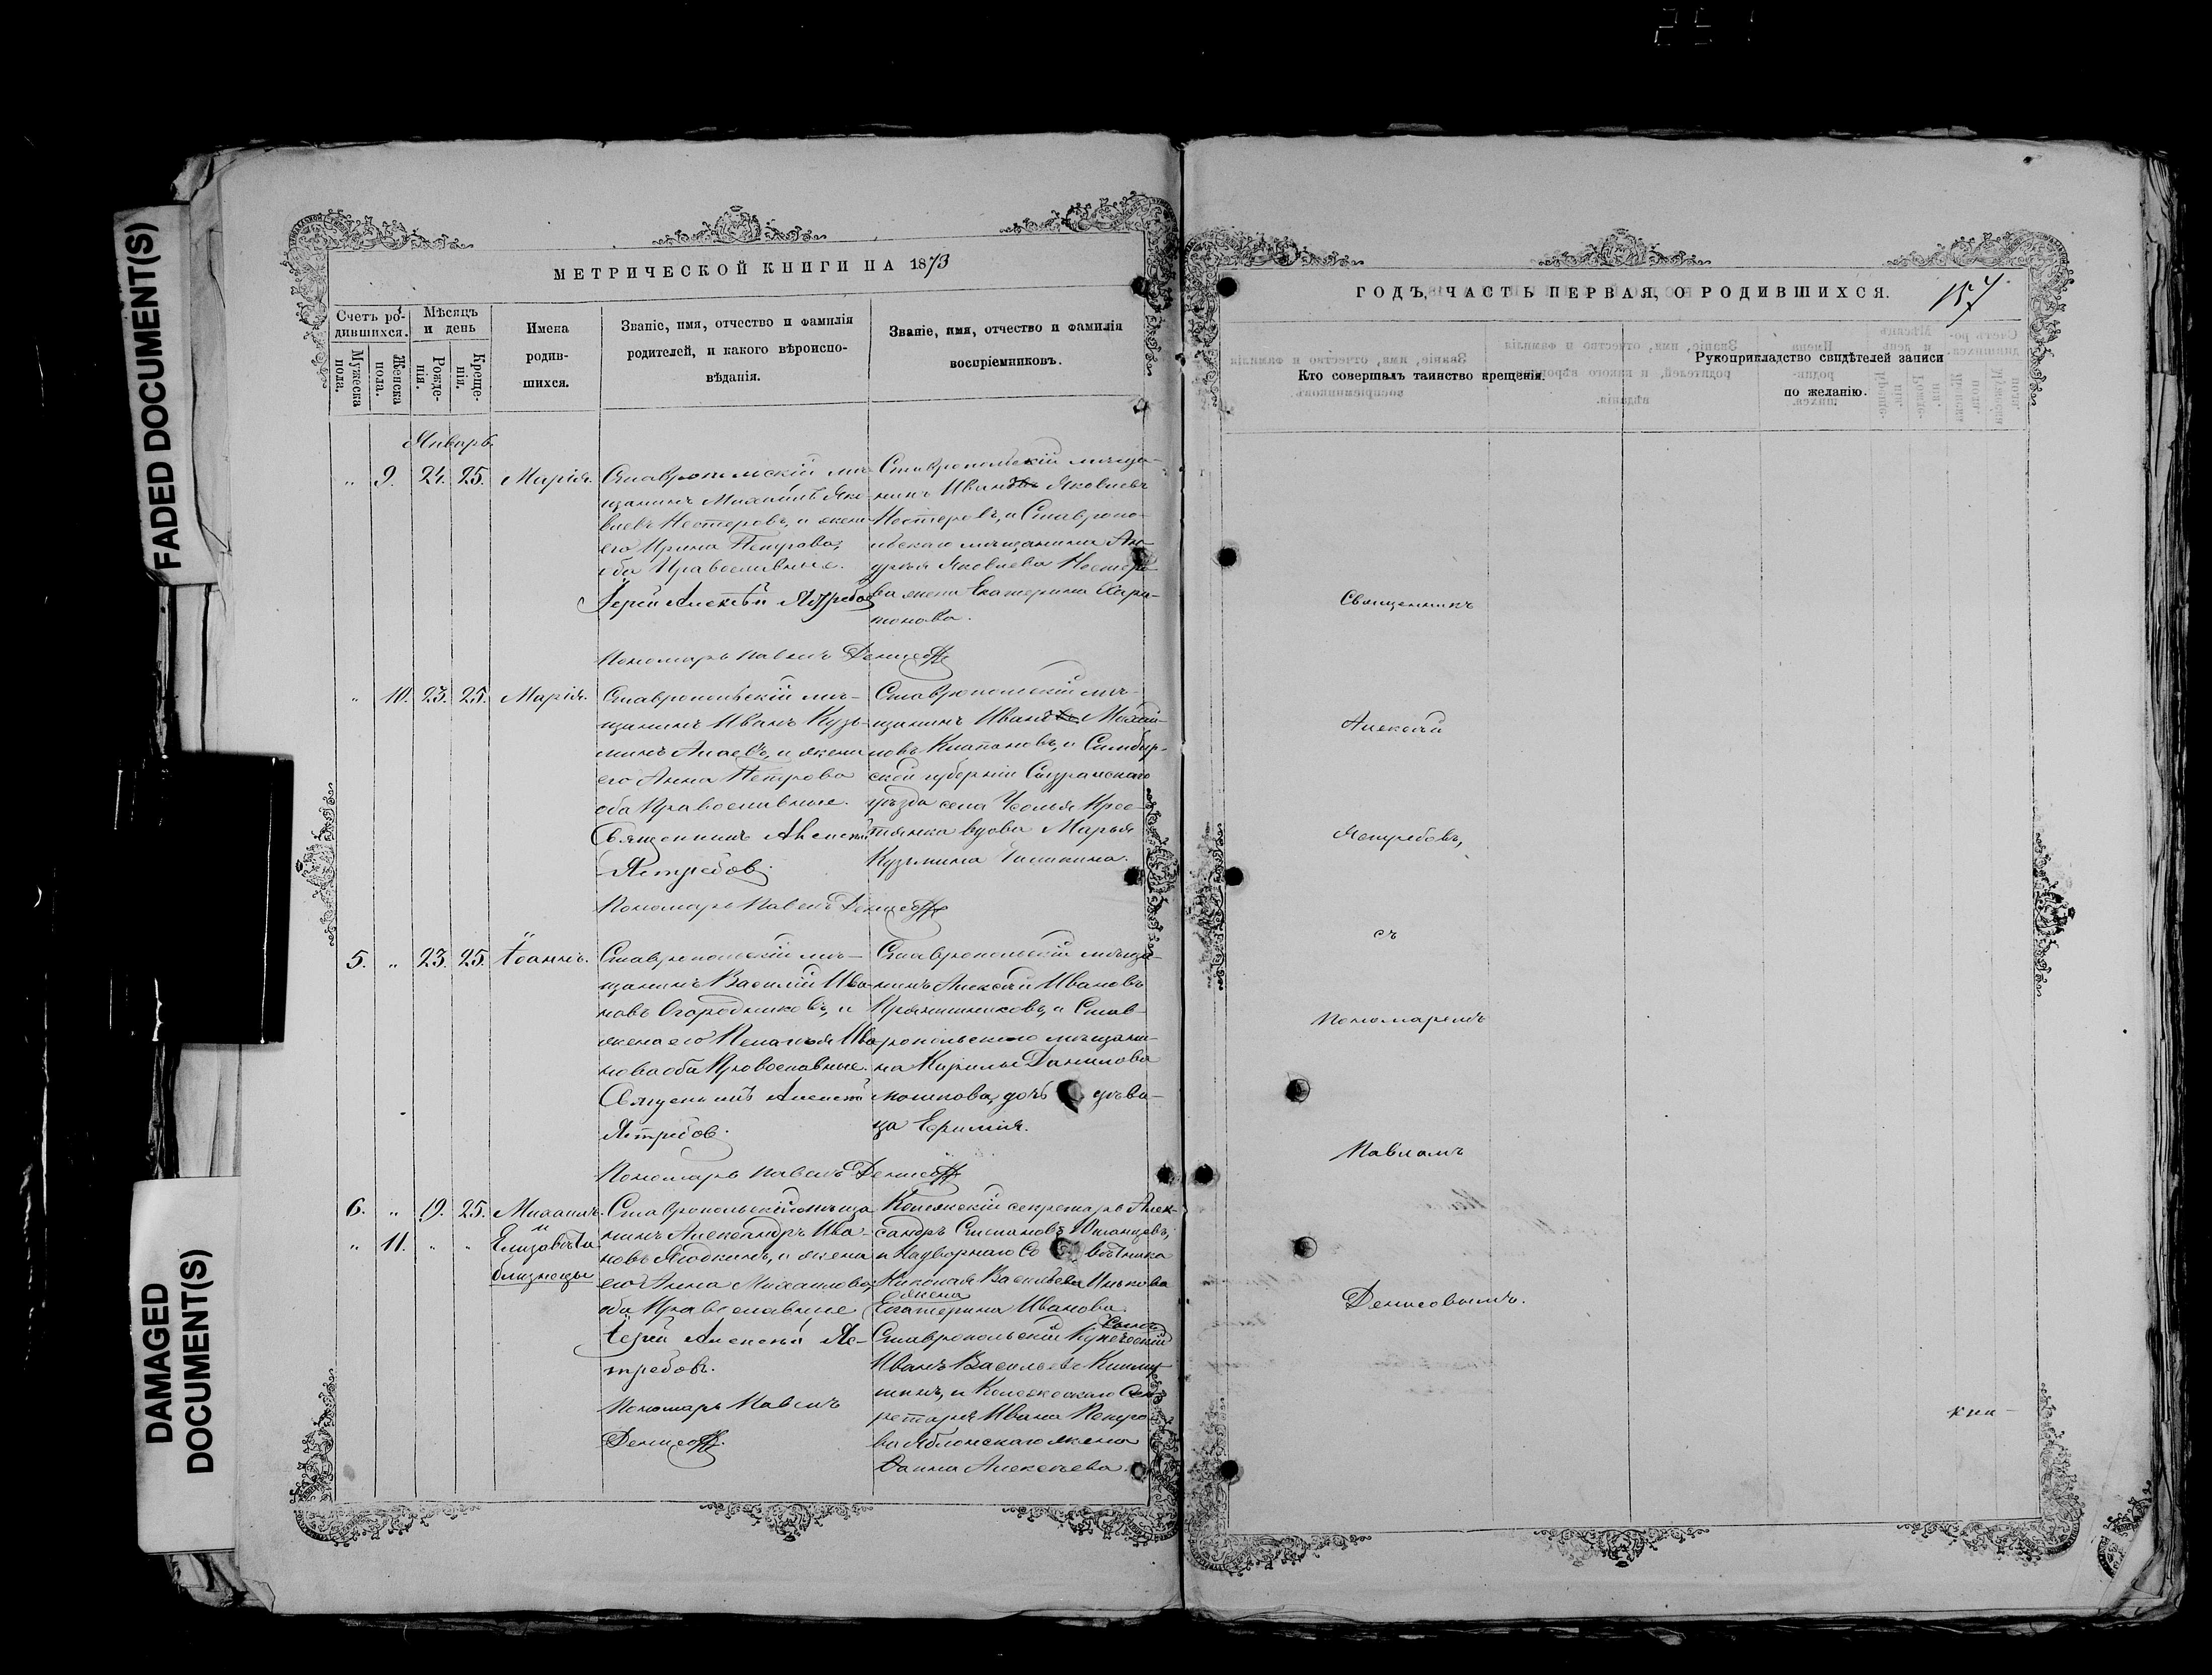 FADED DOCUMENT(S)
DAMAGED
DOCUMENT(S)
МЕТРИЧЕСКОЙ КНИГИ НА 1873
Счетъ ро-
дившихся.
Мужеска
пола.
Женска
пола.
Мѣсяцъ
и день
Рожде-
нія.
Креще-
нія.
Имена
родив-
шихся.
Званіе, имя, отчество и фамилія
родителей, и какого вѣроиспо-
вѣданія.
Званіе, имя, отчество и фамилія
воспріемниковъ.
Январь.
" 9. 24. 25. Марія.
Ставропольскій мѣ-
щанинъ Михаилъ Яко-
влевъ Нестеровъ, и жена
его Ирина Петрова,
оба Православные.
Іерей Алексѣй Ястребов
Пономарь Павелъ Денисовъ
Ставропольскій мѣща-
нинъ Иванъ Яковлевъ
Нестеровъ, и Ставропо-
льскаго мѣщанина Ан-
дрея Яковлева Нестеро-
ва жена Екатерина Хари-
тонова.
" 10. 23. 25. Марія.
Ставропольскій мѣ-
щанинъ Иванъ Кузь-
минъ и жена
его Анна Петрова
оба Православные.
Священникъ Алексѣй
Ястребов.
Пономарь Павелъ Денисовъ
Ставропольскій мѣ-
щанинъ Иванъ Михай-
ловъ и Симбир-
ской губерніи Сызранскаго
уѣзда села Крес-
тьянка вдова Марья
Кузьмина
5. " 23. 25. Іоаннъ.
Ставропольскій мѣ-
щанинъ Василій Ива-
новъ Огородниковъ, и
жена его Пелагея Ива-
нова оба Православные.
Священникъ Алексѣй
Ястребов.
Пономарь Павелъ Денисовъ
Ставропольскій мѣща-
нинъ Алексѣй Ивановъ
Прянишниковъ, и Став-
ропольскаго мѣщани-
на Кирилы Данилова
дочь дѣви-
ца
6. " 19. 25. Михаилъ
и
" 11. " " Елизавѣта
близнецы
Ставропольскій мѣща-
нинъ Александръ Ива-
новъ Ягодкинъ, и жена
его Анна Михаилова,
оба Православные
Іерей Алексѣй Яс-
требовъ.
Пономарь Павелъ
Денисовъ.
Колежскій секретарь Алек-
сандръ Степановъ
и Надворнаго Совѣтника
Николая Васильева
жена
Екатерина Иванова.
Ставропольскій Купеческій
сынъ
Иванъ Васильевъ
и Колежскаго Сек-
ретаря Ивана Петро-
ва Яблонскаго жена
Анна Алексѣева.
ГОДЪ, ЧАСТЬ ПЕРВАЯ, О РОДИВШИХСЯ.
157
Кто совершалъ таинство крещенія.
Рукоприкладство свидѣтелей записи
по желанію.
Священникъ
Алексѣй
Ястребовъ,
съ
Пономаремъ
Павломъ
Денисовымъ.